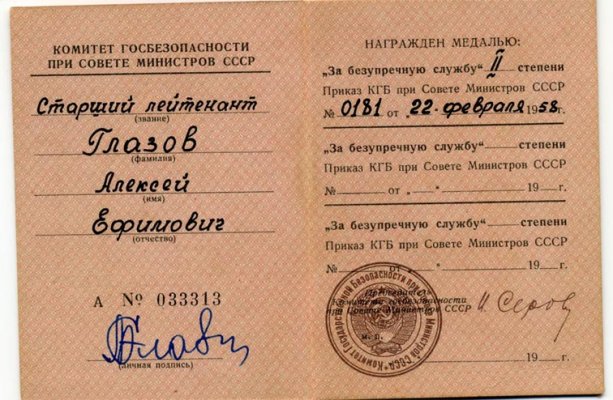 КОМИТЕТ ГОСБЕЗОПАСНОСТИ
ПРИ СОВЕТЕ МИНИСТРОВ СССР
Старший лейтенант
(звание)
Глазов
(фамилия)
Алексей
(имя)
Ефимович
(отчество)
А № 033313
(личная подпись)
НАГРАЖДЕН МЕДАЛЬЮ:
„За безупречную службу“ II степени
Приказ КГБ при Совете Министров СССР
№ 0181 от „22“ февраля 1958 г.
„За безупречную службу“ степени
Приказ КГБ при Совете Министров СССР
№ от „ “ 19 г.
„За безупречную службу“ степени
Приказ КГБ при Совете Министров СССР
№ от
Председатель
Комитета госбезопасности
при Совете Министров СССР И. Серов
Комитет Государственной Безопасности при Совете Министров СССР
м. п.
19 г.